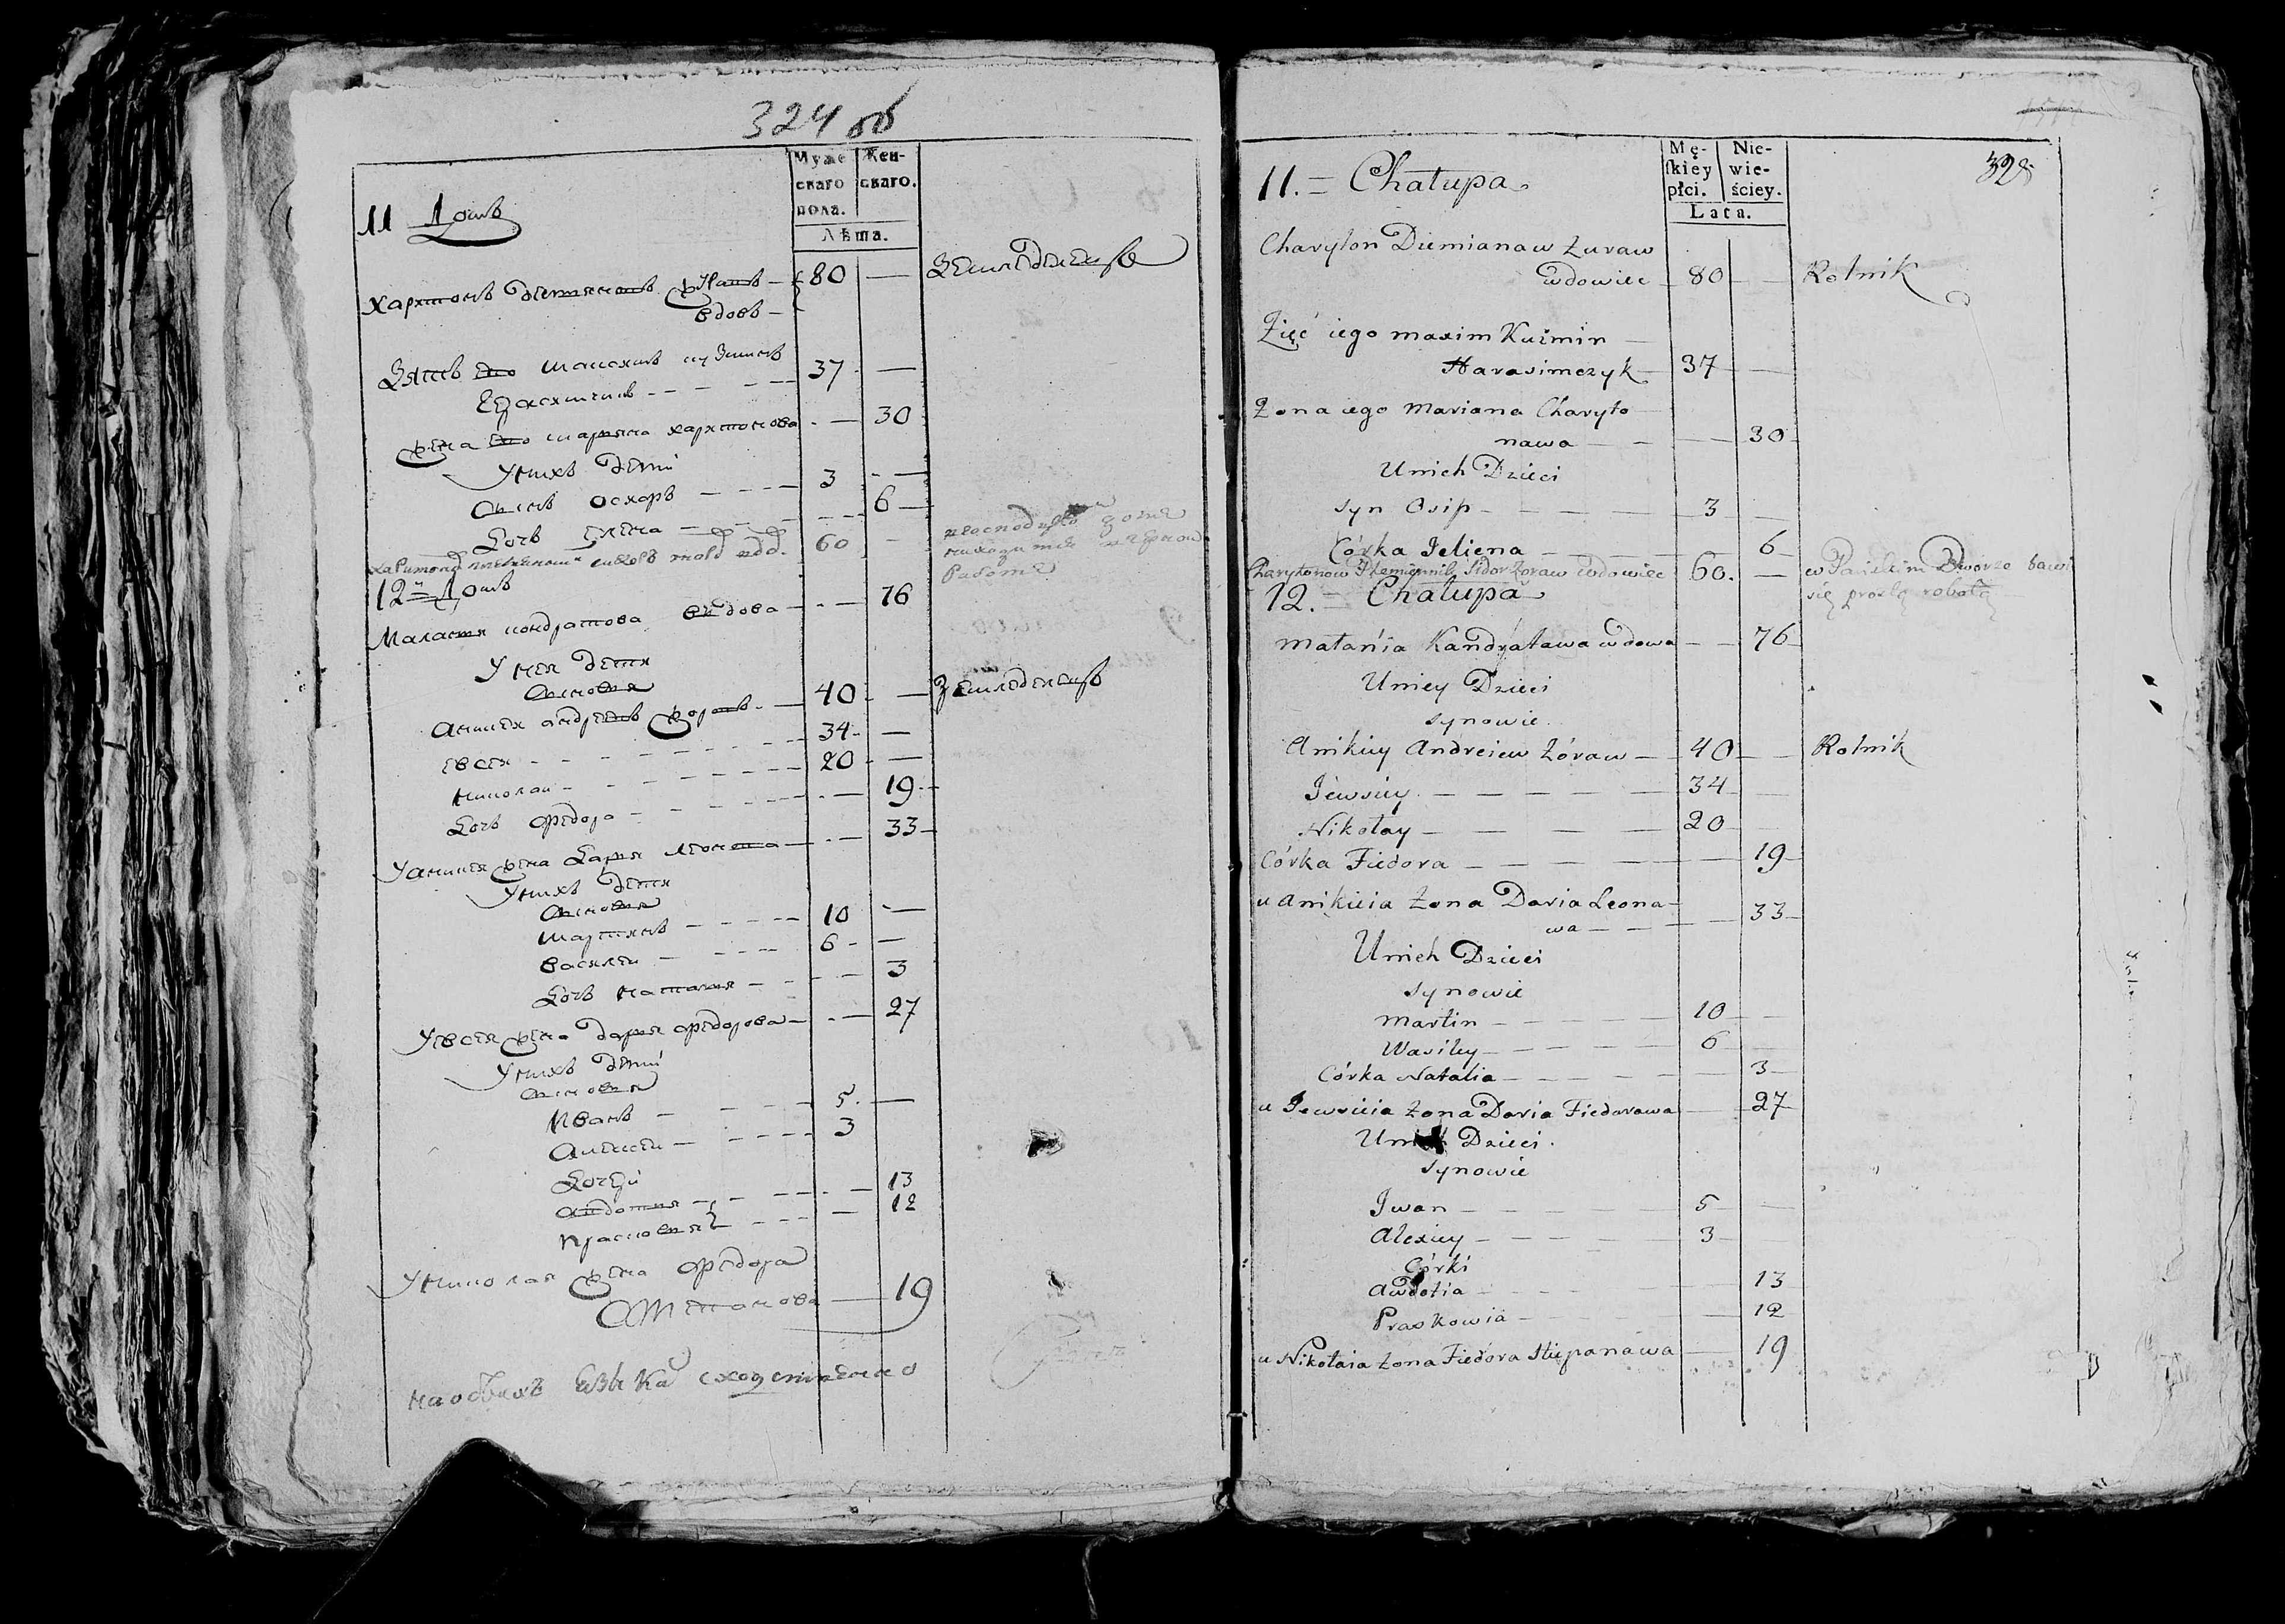 324 об
Муже
скаго
пола.
Жен-
скаго.
Лѣта.
11 Домъ
Харитонъ Демяновъ Журавъ — 80 — Земледелецъ
вдовъ —
Зять его Максимъ Кузминъ
Герасимчикъ - - - - 37 —
Жена его Маряна Харитонова - — 30
У нихъ дети
Сынъ Осипъ - - - - 3 - —
Дочь Елена - - - - 6 —
60 —
12й Домъ
Маланя Кондратова вдова - - — 76
У нея дети
Сыновя
Аникей Андреевъ Жоравъ - — 40 — Земледелецъ
Евсей - - - - 34 —
Николай - - - - 20 —
Дочь Федора - - - - 19
У Аникея жена Даря Леонова - — 33
У нихъ дети
Сыновя
Мартинъ - - - - 10 —
Василей - - - - 6 —
Дочь Наталя - - - - 3
У Евсея жена Даря Федорова - — 27
У нихъ дети
Сыновя
Иванъ - - - - 5 —
Алексей - - - - 3
Дочери
Авдотя - - - - 13
Прасковя - - - - 12
У Николая жена Федора
Степанова — 19
на обоихъ языкахъ сходственно
Mę-
ſkiey
płci.
Nie-
wie-
ściey.
Lata.
11. = Chałupa
Charyton Diemianaw Żuraw
wdowiec 80 — Rolnik
Zięć iego Maxim Kuźmin —
Harasimczyk 37 —
Żona iego Mariana Charyto
nawa — — — 30
Unich Dzieci
syn Osip — — — — 3 —
Córka Jeliena — — — 6
Charytonow Plemiennik Sidor Żoraw wdowiec 60. — w Pańskim Dworze bawi
się prostą robotą
12. = Chałupa
Małańia Kandratawa wdowa — — 76
Uniey Dzieci
synowie
Anikiey Andreiew Żóraw — 40 — Rolnik
Jewsiey — — — — — 34 —
Nikołay — — — — 20 —
Córka Fiedora — — — — — 19
u Anikieia Żona Daria Leona-
wa — — — 33
Unich Dzieci
synowie
Martin — — — — 10 —
Wasiley — — — — 6 —
Córka Natalia — — — — 3
u Jewsieia żona Daria Fiedorawa — 27
Unich Dzieci
synowie
Jwan — — — — 5 —
Alexiey — — — — 3 —
Córki
Awdotia — — — — 13
Praskowia — — — — 12
u Nikołaia żona Fiedora Stiepanawa — 19